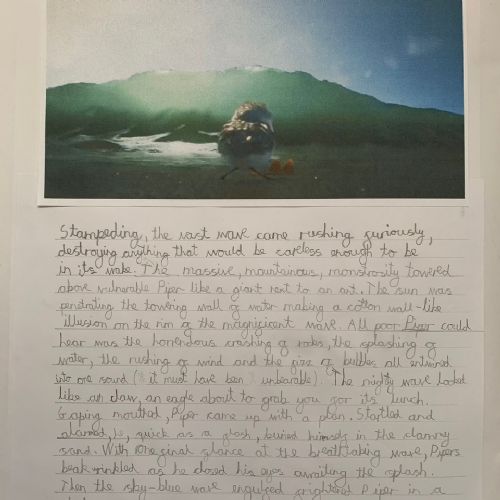 Stampeding, the vast wave came rushing furiously,
destroying anything that would be careless enough to be
in its wake. The massive, mountainous, monstrosity towered
above vulnerable Piper like a giant next to an ant. The sun was
penetrating the towering wall of water making a cotton wall-like
illusion on the rim of the magnificent wave. All poor Piper could
hear was the horrendous crashing of rocks, the splashing of
water, the rushing of wind and the fizz of bubbles all entwined
into one sound (it must have been unbearable). The mighty wave looked
like an claw, an eagle about to grab you for its lunch.
Gaping mouthed, Piper came up with a plan. Startled and
alarmed, he, quick as a flash, buried himself in the clammy
sand. With one final glance at the breathtaking wave, Pipers
beak wrinkled as he closed his eyes awaiting the splash.
Then the sky-blue wave engulfed frightened Piper in a